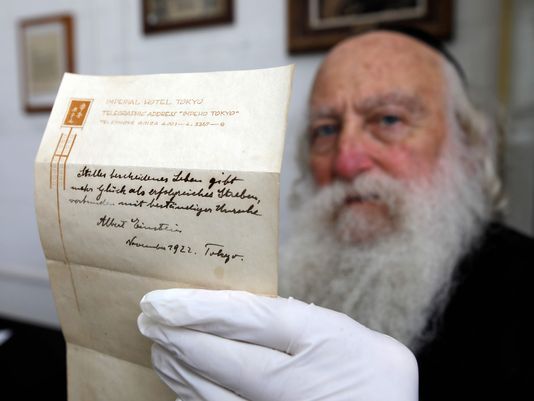 IMPERIAL HOTEL TOKYO
TELEGRAPHIC ADDRESS "IMPEHO TOKYO"
Stilles bescheidenes Leben gibt
mehr Glück als erfolgreiches Streben,
verbunden mit beständiger Unruhe
Albert Einstein
November 1922. Tokyo.